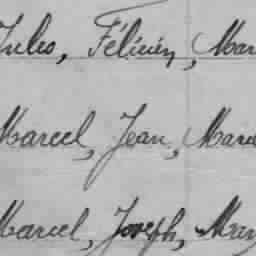 Jules, Félicien, Mar
Marcel, Jean, Marc
Marcel, Joseph, Mar